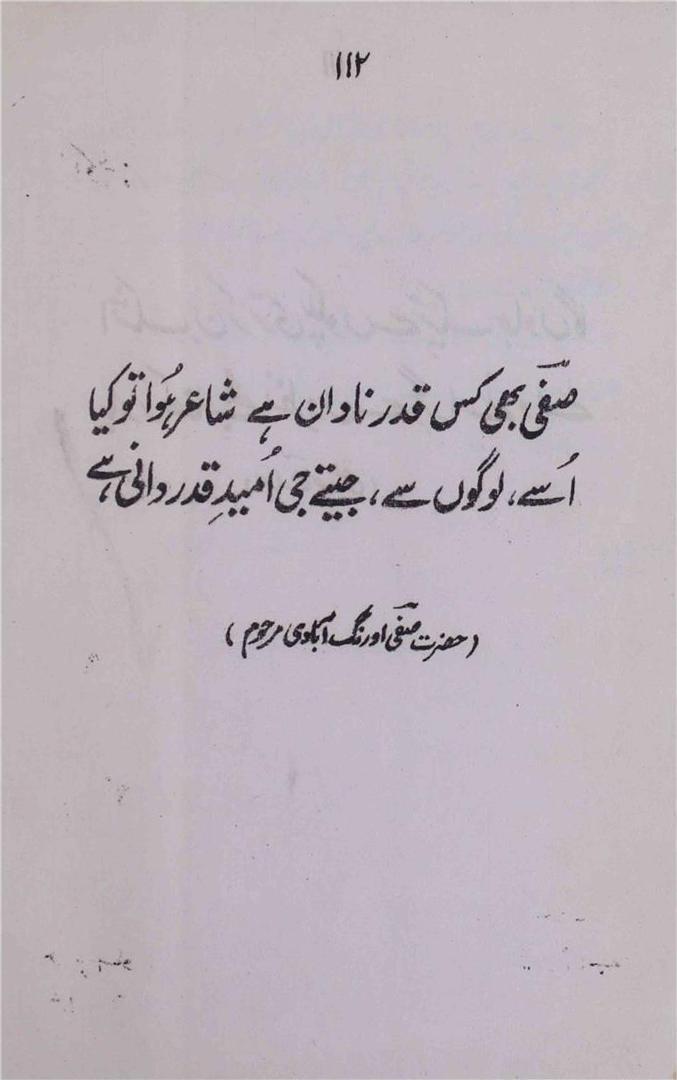 ۱۱۲
صفیؔ بھی کس قدر نادان ہے شاعر ہُوا تو کیا
اُسے، لوگوں سے، جیتے جی اُمیدِ قدر دانی ہے
(حضرت صفیؔ اورنگ آبادی مرحوم)